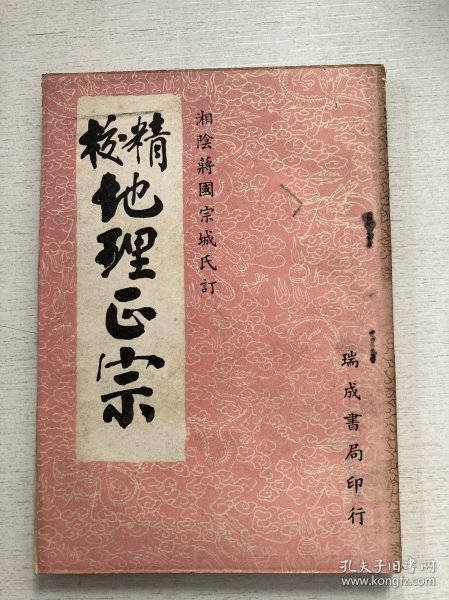 精校
地理正宗
湘陰蔣國宗城氏訂
瑞成書局印行
孔夫子旧书网
www.kongfz.com